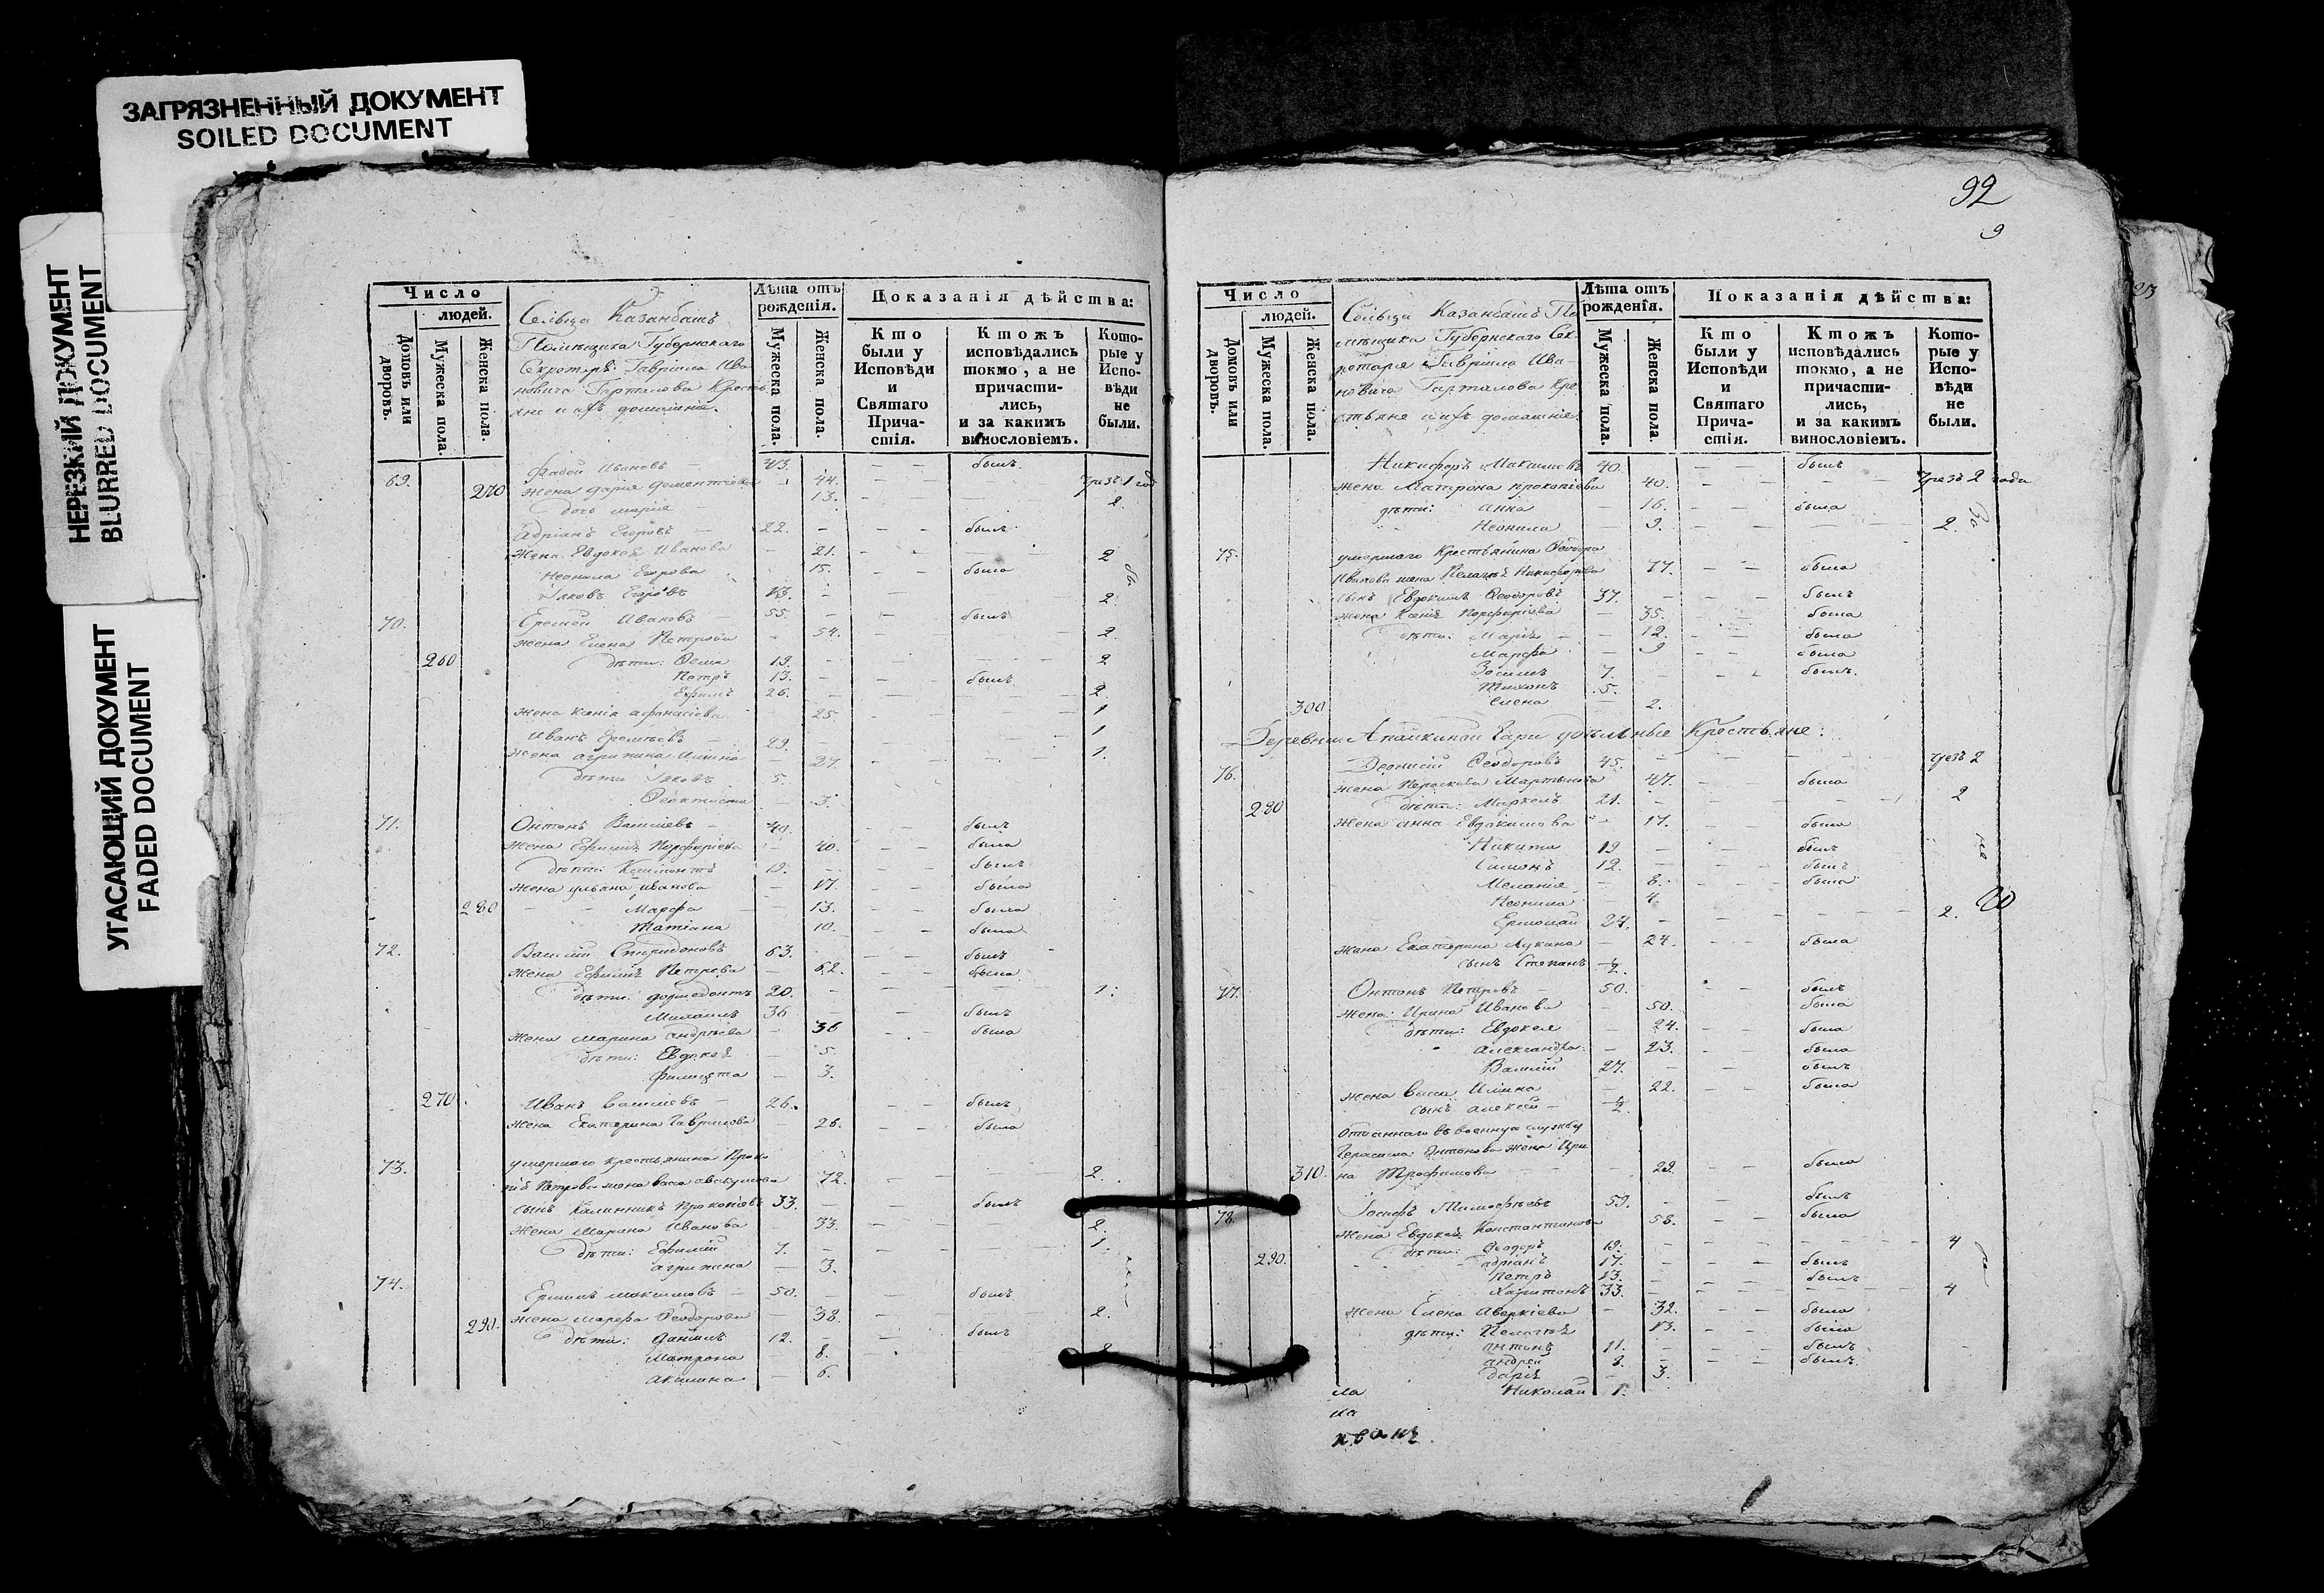 ЗАГРЯЗНЕННЫЙ ДОКУМЕНТ
SOILED DOCUMENT
НЕРЕЗКИЙ ДОКУМЕНТ
BLURRED DOCUMENT
УГАСАЮЩИЙ ДОКУМЕНТ
FADED DOCUMENT
Число
людей.
Домовъ или дворовъ.
Мужеска пола.
Женска пола.
Сельца Казанбашъ
Помѣщика Губернскаго
Секретаря Гаврила Ива
новича Крестья
яне и ихъ домашніе.
Лѣта отъ рожденія.
Мужеска пола.
Женска пола.
Показанія дѣйства:
Кто были у Исповѣди и Святаго Причастія.
Ктожъ исповѣдались токмо, а не причастились, и за какимъ винословіемъ.
Которые у Исповѣди не были.
Фадей Ивановъ 43. былъ
69. 270 жена Дарія Дементіева 44. чрезъ 1 год
дочь Марія 13. 2.
Адріанъ Егоровъ 22. былъ
жена Евдокея Иванова 21. 2
Неонила Егорова 15. была
Іаковъ Егоровъ 13. 2.
70. Еремей Ивановъ 55. былъ
жена Елена Петрова 54. 2.
260 дѣти: Ѳома 19. 2
Петръ 13. былъ
Ефимъ 26. 2.
жена Ксенія Афанасіева 25. 1
Иванъ Еремѣевъ 29. 1
жена Агрипина Ильина 27. 1.
дѣти Іаковъ 5.
Ѳеоктиста 3.
71. Онтонъ Васильевъ 40. былъ
жена Ефимія Порфиріева 40. была
дѣти 19. былъ
жена Ульяна Иванова 17. была
280 Марфа 13. была
Татіана 10. была
72. Василій Спиридоновъ 63. былъ
жена Ефимія Петрова 62. была
дѣти: Дормедонтъ 20. 1.
Михаилъ 36 былъ
жена Марина Андрѣева 36 была
дѣти: Евдокея 5.
Филицата 3.
270. Иванъ Васильевъ 26. былъ
жена Екатерина Гаврилова 26. была
73. умершаго крестьянина Проко
пія Петрова жена Васса 72. 2.
сынъ Калинникъ Прокопіевъ 33. былъ
жена Марина Иванова 33. 2.
дѣти: Ефимій 7. 1.
Агрипина 3.
74. Ермилъ Максимовъ 50. былъ
290. жена Марфа Ѳеодорова 38. 2.
дѣти: Даніилъ 12. былъ
Матрона 8.
Акилина 6.
92
9
Число
людей.
Домовъ или дворовъ.
Мужеска пола.
Женска пола.
Сельца Казанбашъ По
мѣщика Губернскаго Сек
ретаря Гаврила Ива
новича Кре
стьяне и ихъ домашніе
Лѣта отъ рожденія.
Мужеска пола.
Женска пола
Показанія дѣйства:
Кто были у Исповѣди и Святаго Причастія.
Ктожъ исповѣдались токмо, а не причастились, и за какимъ винословіемъ.
Которые у Исповѣди не были.
Никифоръ Максимовъ 40. былъ
жена Матрона Прокопіева 40. чрезъ 2 года
дѣти: Анна 16. была
Неонила 9. 2.
75. умершаго крестьянина Ѳеодора
Иванова жена Пелагея Никифорова 77. была
сынъ Евдокимъ Ѳеодоровъ 37. былъ
жена Ксенія Порфиріева 35. была
дѣти: Марія 12. была
Марфа 9 была
Зосимъ 7. былъ.
Тихонъ 5.
300 Елена 2.
Деревни Апайкиной Гари удѣльные Крестьяне:
76. Деонисій Ѳеодоровъ 45. чрезъ 2
жена Параскева Мартынова 47. была
280 дѣти: Маркелъ 21. 2
жена Анна Евдокимова 17. была
Никита 19 былъ
Симонъ 12. былъ
Меланія 8. была
Неонила 4.
Ермолай 24. 2.
жена Екатерина Лукина 24. была
сынъ Степанъ ½.
77. Онтонъ Петровъ 50. былъ
жена: Ирина Иванова 50. была
дѣти: Евдокея 24. была
Александра 23. была
Василій 27. былъ
жена Васса Ильина 22. была
сынъ Алексій ½.
Отданнаго въ военную службу
Герасима Онтонова жена Ири
310. на Трофимова 29. была
78. Іосифъ Тимофѣевъ 59. былъ
жена Евдокея Константинова 58. была
дѣти: Ѳеодоръ 19. 4
290. Адріанъ 17. былъ
Петръ 13. былъ
Харитонъ 33. 4
жена Елена Аверкіева 32. была
дѣти: Пелагея 13. была
Антонъ 11. былъ
Андрей 8. былъ.
Дарія 3.
ла Николай 1.
ла